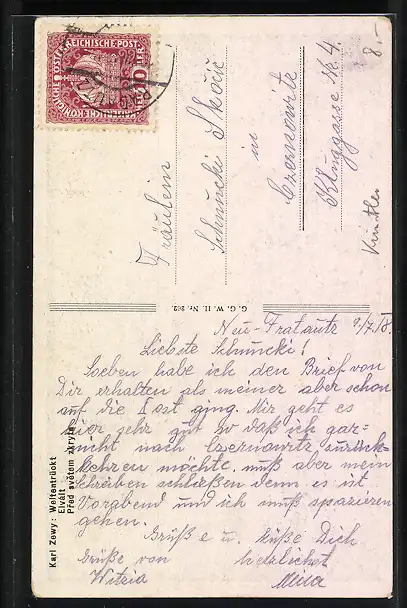 KAISERLICHE KÖNIGLICHE ÖSTERREICHISCHE POST
10 HELLER
8.-
Fräulein
Schnucki Skočič
in
Czernowitz
Klinggasse № 4.
Künstler
G. G. W. II. Nr. 262
Karl Zewy: Weltentrückt
Elvált
Před světem skryti
Neu-Fratautz 9/7./18.
Liebste Schnucki!
Soeben habe ich den Brief von
Dir erhalten als meiner aber schon
auf die Post ging. Mir geht es
hier sehr gut so daß ich gar=
nicht nach Czernowitz zurück-
kehren möchte. muß aber mein
Schreiben schließen denn es ist
Vorabend und ich muß spazieren
gehen.
Grüße u. küße Dich
Grüße von herzlichst